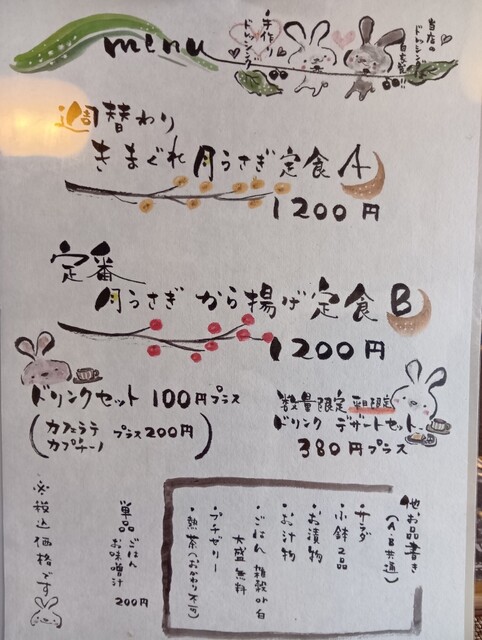 menu
手作り
ドレッシング
当店の
ドレッシング
自家製!!
週替わり
きまぐれ月うさぎ定食A
1200円
定番
月うさぎから揚げ定食B
1200円
ドリンクセット 100円プラス
(カフェラテ
カプチーノ プラス200円)
数量限定
ドリンク デザートセット
380円プラス
他お品書き
(A・B共通)
・サラダ
・小鉢2品
・お漬物
・お汁物
・ごはん 雑穀or白
大盛無料
・プチゼリー
・熱茶(おかわり不可)
単品 ごはん
お味噌汁
200円
※税込価格です